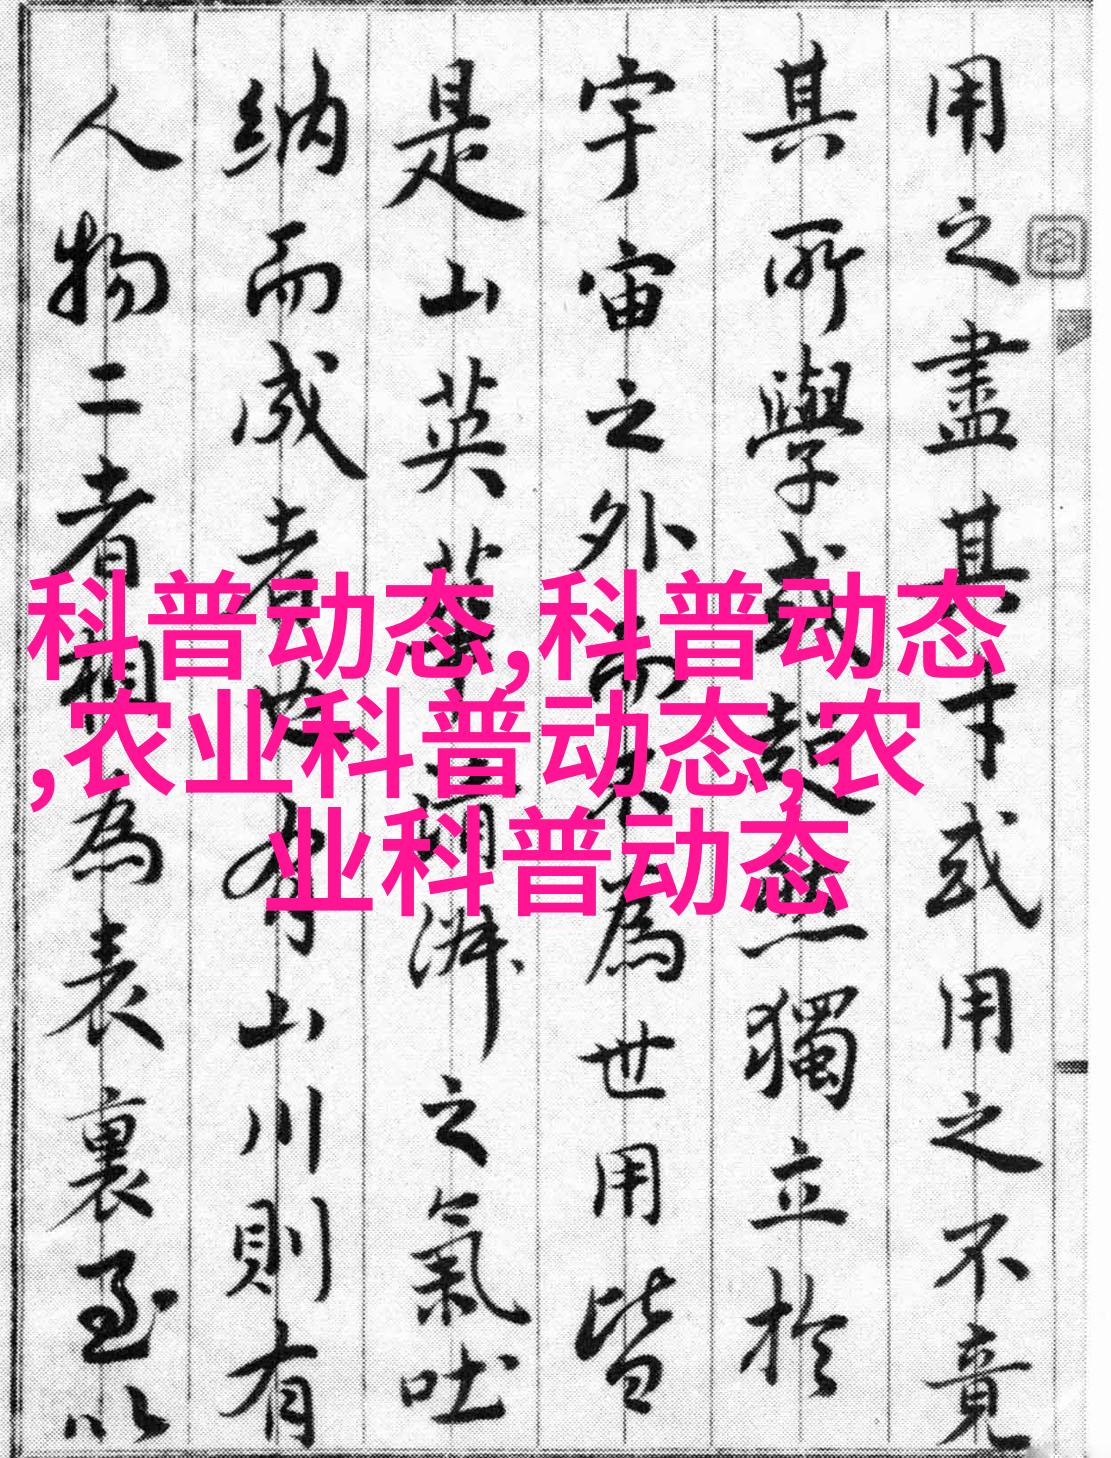 用之盡其才或用之不竟
其所學或超然獨立於
宇宙之外而不為世用皆
是山英華清淑之氣吐
納而成者也有山川則有
人物二者相為表裏至以
科普动态,科普动态
,农业科普动态,农
业科普动态